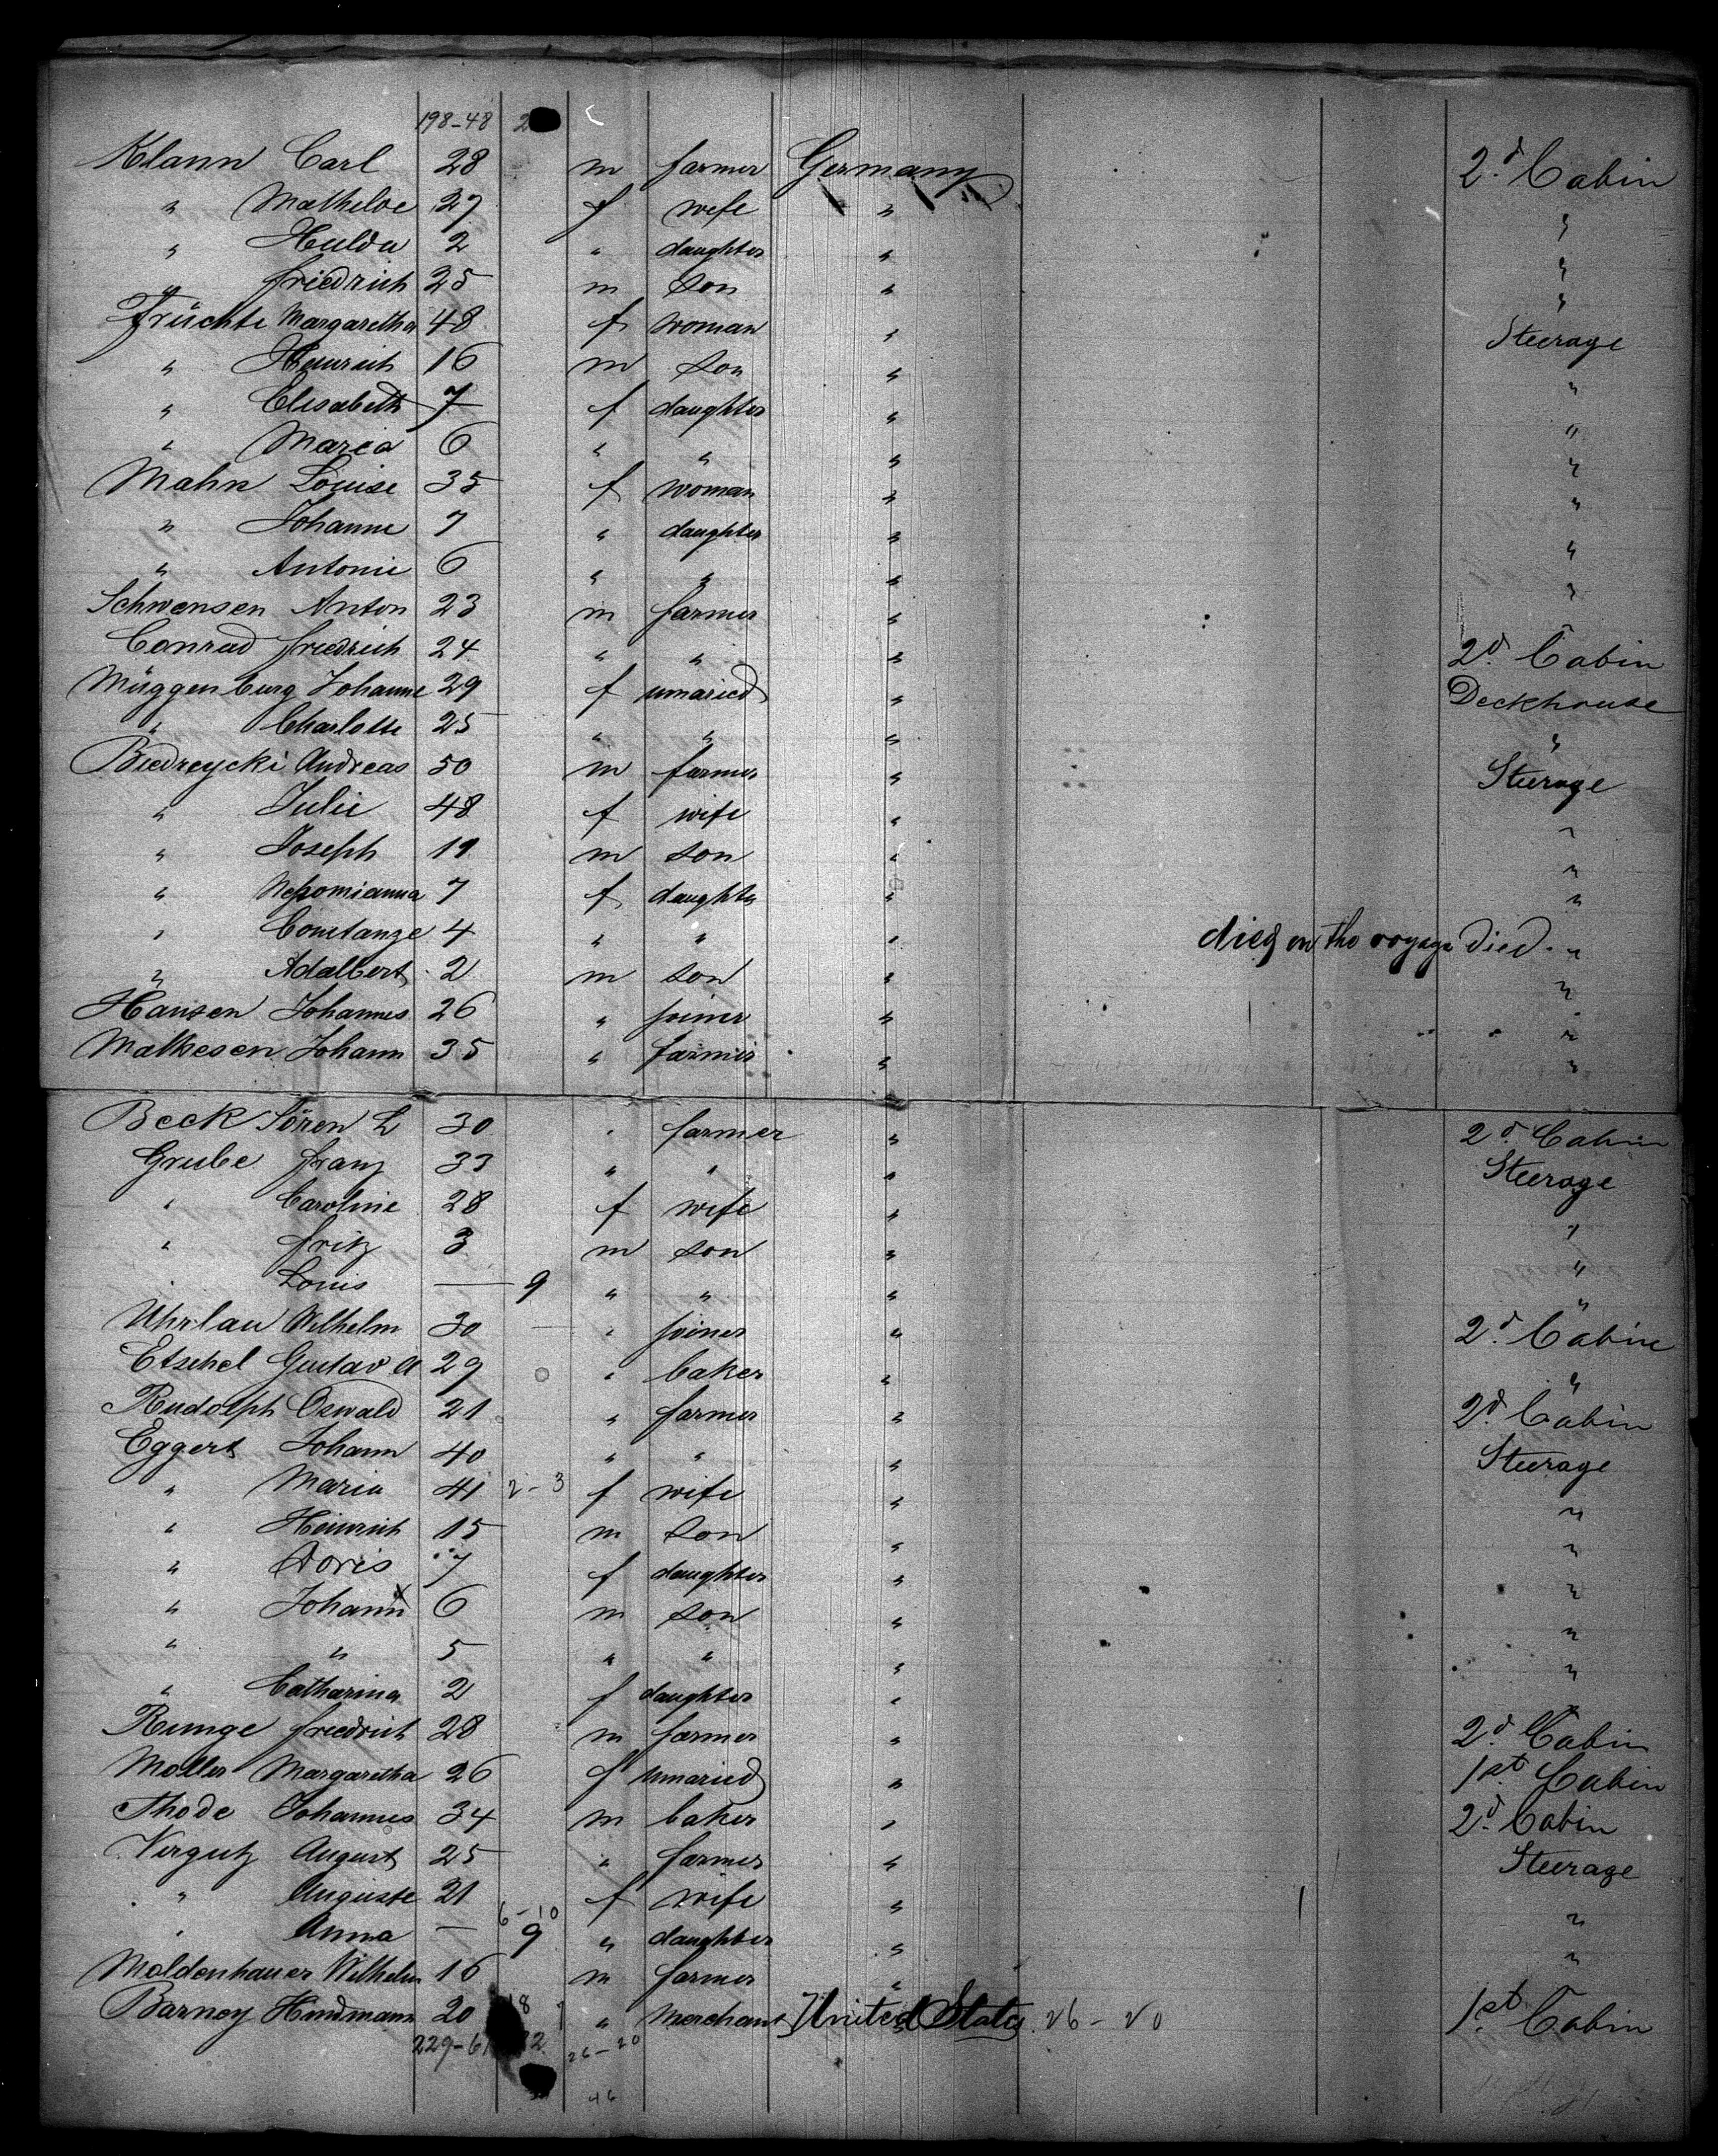 198-48 2
Klann Carl 28 m farmer Germany 2d Cabin
" Mathilde 27 f wife " "
" Hulda 2 " daughter " "
" Friedrich 25 m son " "
Früchte Margaretha 48 f woman " Steerage
" Heinrich 16 m son " "
" Elisabeth 7 f daughter " "
" Maria 6 " " " "
Mahn Louise 35 f woman " "
" Johanne 7 " daughter " "
" Antonie 6 " " " "
Schwensen Anton 23 m farmer "
Conrad Friedrich 24 " " " 2d Cabin
Müggenburg Johanne 29 f unmaried " Deckhouse
" Charlotte 25 " " " "
Biedreycki Andreas 50 m farmer " Steerage
" Julie 48 f wife " "
" Joseph 19 m son " "
" Nepomianna 7 f daughter " "
" Constanze 4 " " " died on the voyage Died. "
" Adalbert 2 m son " "
Hansen Johannes 26 " joiner " "
Matkesen Johann 35 " farmer " "
Beck Sören L 30 " farmer " 2d Cabin
Grube Franz 33 " " " Steerage
" Caroline 28 f wife " "
" Fritz 3 m son " "
" Louis — 9 " " " "
Uhrlau Wilhelm 30 " joiner " 2d Cabin
Etschel Gustav A 29 " baker " "
Rudolph Oswald 21 " farmer " 2d Cabin
Eggert Johann 40 " " " Steerage
" Maria 41 2-3 f wife " "
" Heinrich 15 m son " "
" Doris 7 f daughter " "
" Johann 6 m son " "
" " 5 " " " "
" Catharina 2 f daughter " "
Runge Friedrich 28 m farmer " 2d Cabin
Moller Margaretha 26 f unmaried " 1st Cabin
Thode Johannes 34 m baker " 2d Cabin
Virgutz August 25 " farmer " Steerage
" Auguste 21 f wife " "
6-10
" Anna — 9 " daughter " "
Moldenhauer Wilhelm 16 m farmer "
Barney Hindmann 20 18 " Merchant United States 26-20 1st Cabin
229-61 32 26-20
46